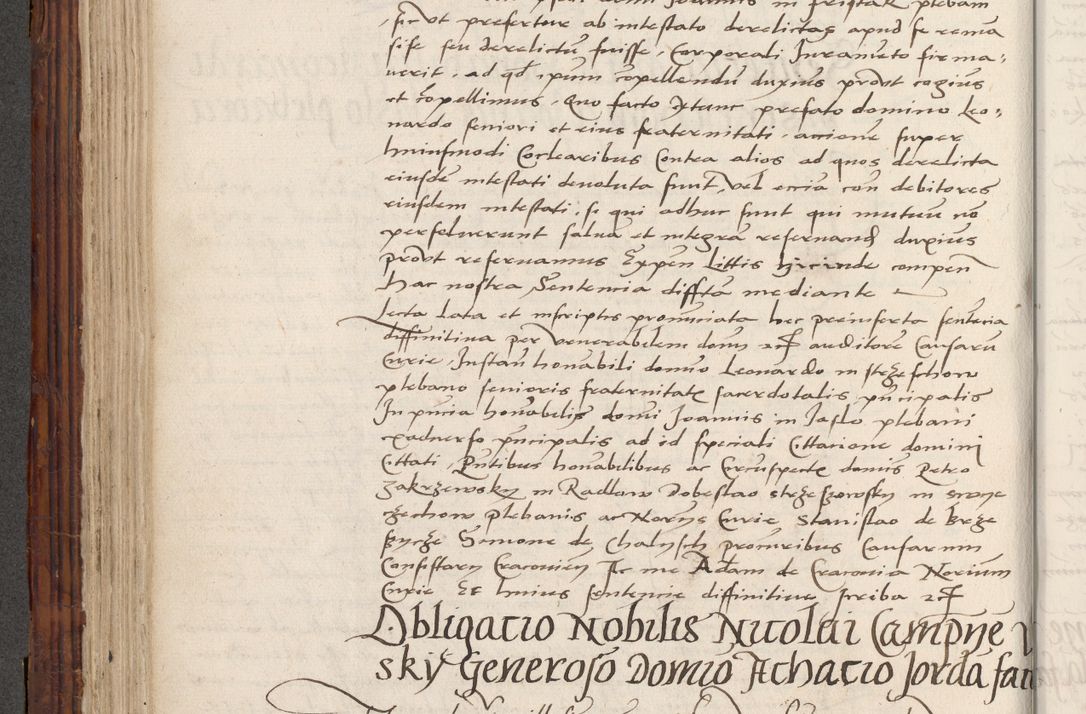 sicut prefertur ab intestato derelictas apud se rema
sisse seu derelictu fuisse, Corporali Juramento firma,
uerit, ad qd ipum copellendu duxius prout cogius
et copellimus, Quo facto extunc prefato domino Leo,
nardo seniori et eius fraternitati, actione super
huiusmodi Coclearibus Contra alios ad quos derelicta
eiusde intestati deuoluta sunt, vel eciia con debitores
eiusdem intestati, si qui adhuc sunt qui mutuu no
persoluerunt saluа et integra reseruand duxius
prout reseruamus Expen Littis hicinde compen
hac nostra Sentencia diffta mediante
Lecta Lata et inscriptis pronuciata hec preinserta sentencia
diffinitiua per Venerabilem domn auditore Causaru
Curie, Instan honabili domino Leonardo in strzeschow
plebano senioris fraternitatis sacerdotalis principalis
In pncia honabilis domni Joannis in Jaslo plebani
exaduerso principalis ad id speciali Cittacione domini
Cittati, Pntibus honabilibus ac Circuspectis domis Petro
Zakrzewsky in Radlow Dobeslao strzeszowsky in
zechow Plebanis ac Norys Curie Stanislao de Brze
Symone de Chalysch procuribus Causarum
Consistory Cracouien Ac me Adam de Cracouia Norium
Curie Et huius sentencie diffinitiue scriba
Obligacio Nobilis Nicolai Campye
sky Generoso Domino Achacio Jorda